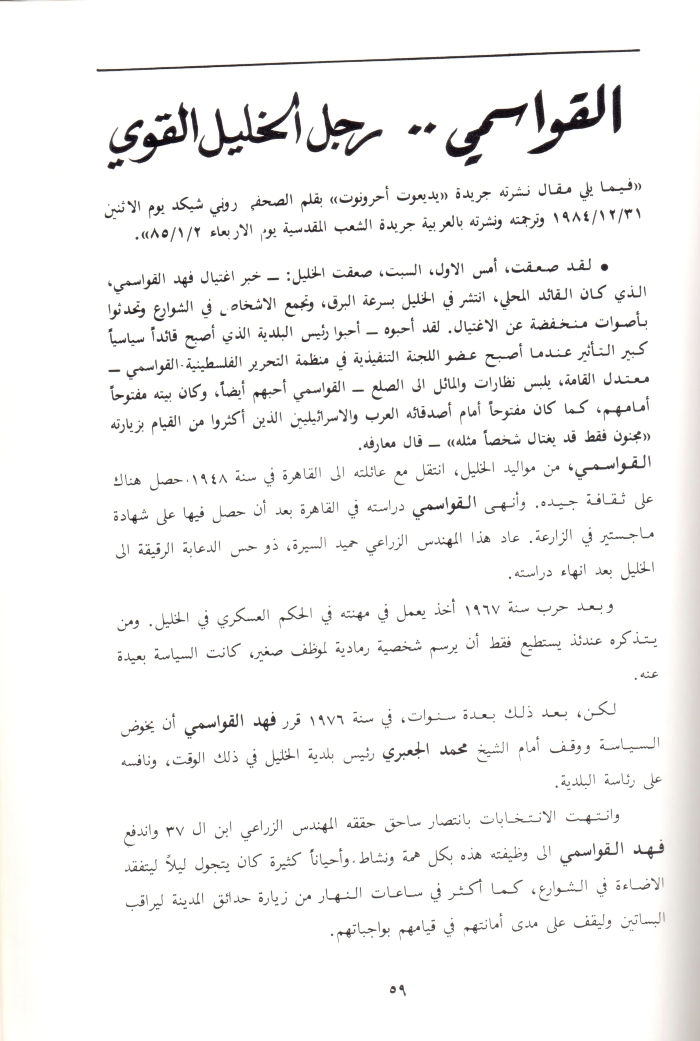 القواسمي .. رجل الخليل القوي
«فيما يلي مقال نشرته جريدة «يديعوت أحرونوت» بقلم الصحفي روني شيكد يوم الاثنين
١٩٨٤/١٢/٣١ وترجمته ونشرته بالعربية جريدة الشعب المقدسية يوم الاربعاء ٨٥/١/٢».
• لقد صعقت، أمس الاول، السبت، صعقت الخليل: ــ خبر اغتيال فهد القواسمي،
الذي كان القائد المحلي، انتشر في الخليل بسرعة البرق، وتجمع الاشخاص في الشوارع وتحدثوا
بأصوات منخفضة عن الاغتيال. لقد أحبوه ــ أحبوا رئيس البلدية الذي أصبح قائداً سياسياً
كبير التأثير عندما أصبح عضو اللجنة التنفيذية في منظمة التحرير الفلسطينية. القواسمي ــ
معتدل القامة، يلبس نظارات والمائل الى الصلع ــ القواسمي أحبهم أيضاً، وكان بيته مفتوحاً
أمامهم، كما كان مفتوحاً أمام أصدقائه العرب والاسرائيليين الذين أكثروا من القيام بزيارته
«مجنون فقط قد يغتال شخصاً مثله» ــ قال معارفه.
القواسمي، من مواليد الخليل، انتقل مع عائلته الى القاهرة في سنة ١٩٤٨. حصل هناك
على ثقافة جيده. وأنهى القواسمي دراسته في القاهرة بعد أن حصل فيها على شهادة
ماجستير في الزارعة. عاد هذا المهندس الزراعي حميد السيرة، ذو حس الدعابة الرقيقة الى
الخليل بعد انهاء دراسته.
وبعد حرب سنة ١٩٦٧ أخذ يعمل في مهنته في الحكم العسكري في الخليل. ومن
يتذكره عندئذ يستطيع فقط أن يرسم شخصية رمادية لموظف صغير، كانت السياسة بعيدة
عنه.
لكن، بعد ذلك بعدة سنوات، في سنة ١٩٧٦ قرر فهد القواسمي أن يخوض
السياسة ووقف أمام الشيخ محمد الجعبري رئيس بلدية الخليل في ذلك الوقت، ونافسه
على رئاسة البلدية.
وانتهت الانتخابات بانتصار ساحق حققه المهندس الزراعي ابن ال ٣٧ واندفع
فهد القواسمي الى وظيفته هذه بكل همة ونشاط. وأحياناً كثيرة كان يتجول ليلاً ليتفقد
الاضاءة في الشوارع، كما أكثر في ساعات النهار من زيارة حدائق المدينة ليراقب
البساتين وليقف على مدى أمانتهم في قيامهم بواجباتهم.
٥٩